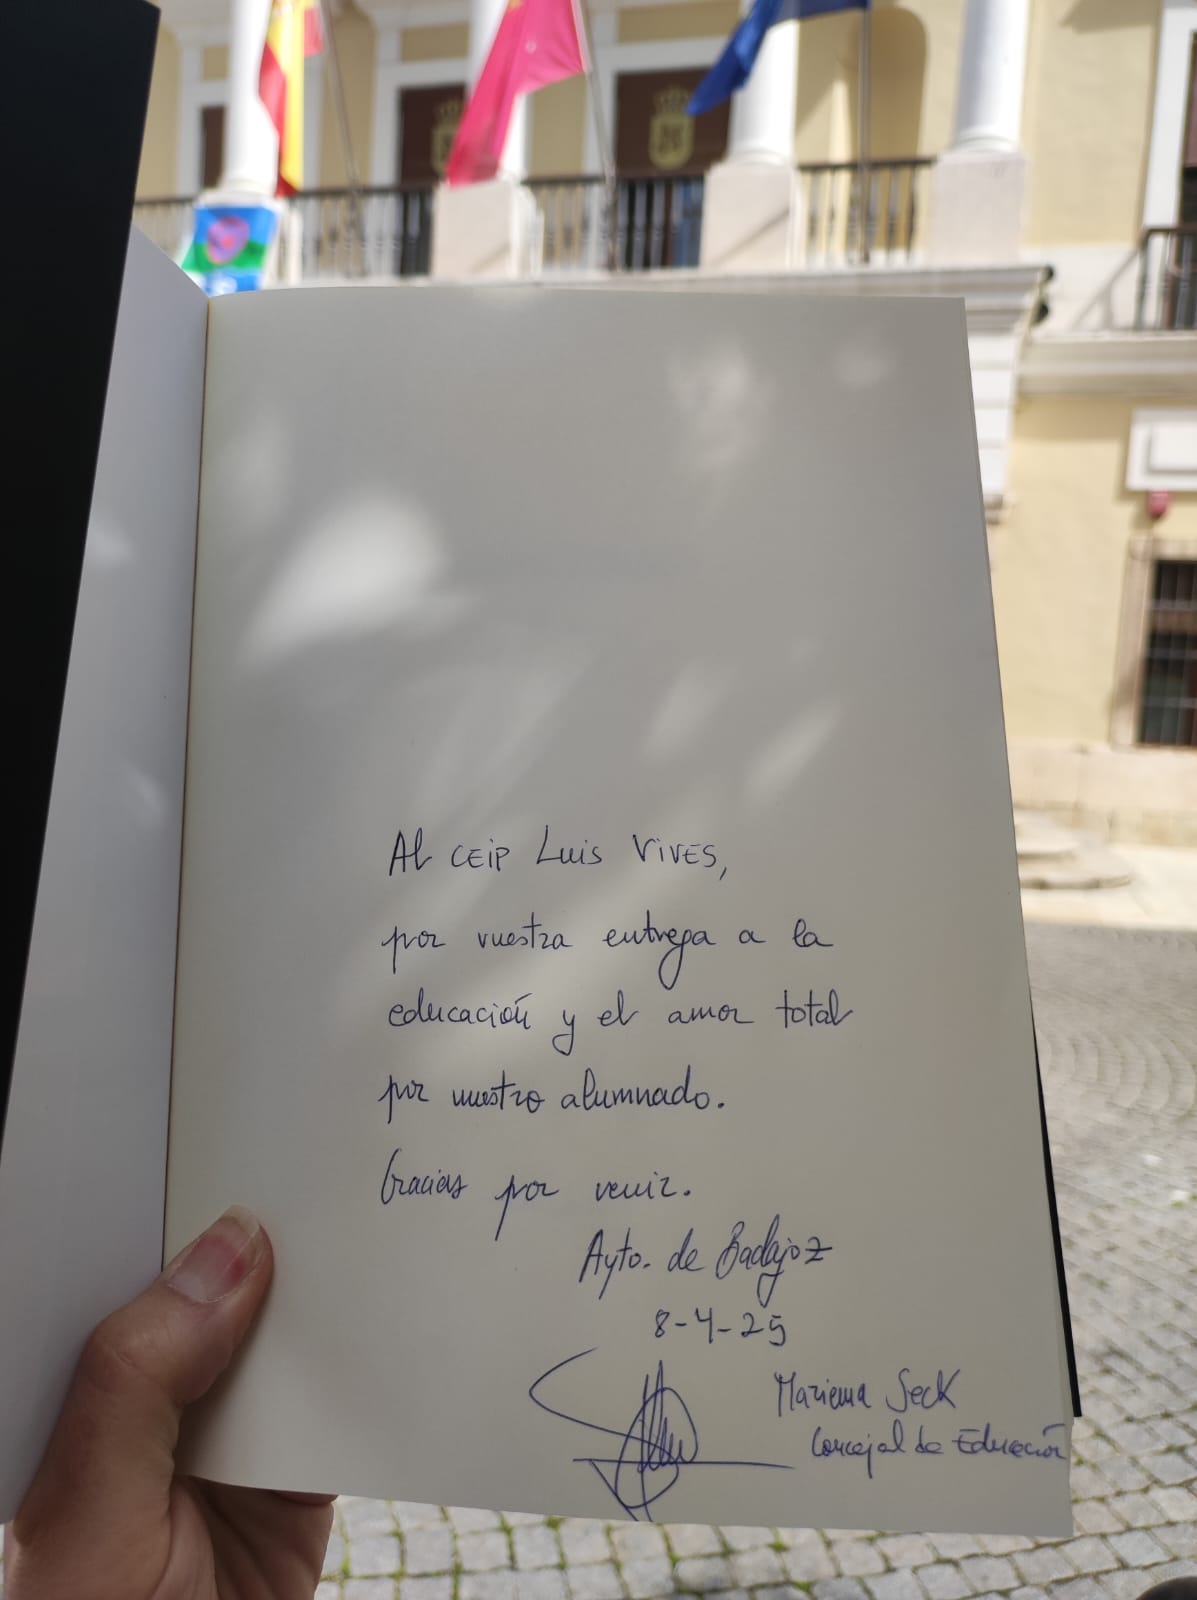 Al CEIP Luis Vives,
por vuestra entrega a la
educación y el amor total
por nuestro alumnado.
Gracias por venir.
Ayto. de Badajoz
8-4-25
Mariema Seck
Concejal de Educación